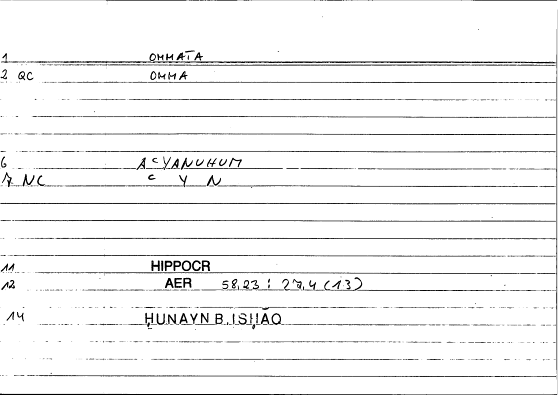 1 OMMATA
2 QC OMMA
6 AᶜYANUHUM
7 NC ᶜ Y N
11 HIPPOCR
12 AER 58,23 : 27,4 (13)
14 ḤUNAYN B. ISḤĀQ